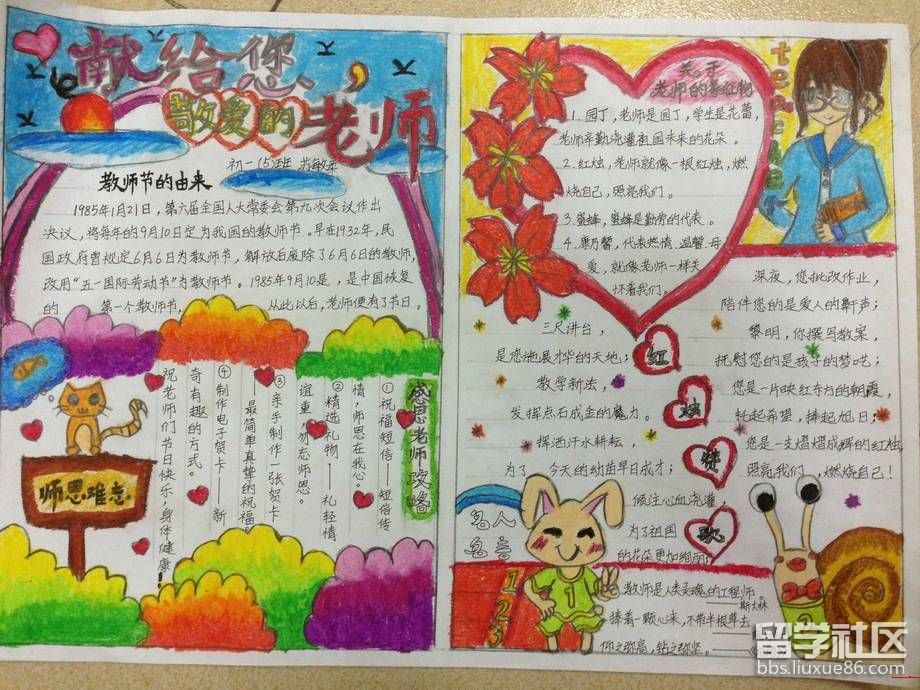 献给您、
敬爱的老师
初一(5)班
教师节的由来
1985年1月21日，第六届全国人大常委会第九次会议作出
决议，将每年的9月10日定为我国的教师节。早在1932年，民
国政府曾规定6月6日为教师节，解放后废除了6月6日的教师节，
改用“五一国际劳动节”为教师节。1985年9月10是，是中国恢复
的 第一个教师节， 从此以后，老师便有了节日。
感恩老师攻略
①祝福短信——短信传
情，师恩在我心。
②精选礼物——礼轻情
谊重，勿忘师恩。
③亲手制作一张贺卡
——最简单真挚的祝福
④制作电子贺卡——新
奇有趣的方式。
祝老师们节日快乐，身体健康！
师恩难忘
关。于
老师的象征物
1.园丁，老师是园丁，学生是花蕾，
老师辛勤浇灌祖国未来的花朵。
2.红烛，老师就像一根红烛，燃
烧自己，照亮我们。
3.蜜蜂，蜜蜂是勤劳的代表。
4.康乃馨，代表热情、温馨、母
爱，就像老师一样关
怀着我们。
红烛赞歌
三尺讲台，
是您施展才华的天地；
教学新法，
发挥点石成金的魔力。
挥洒汗水耕耘，
为了 今天的幼苗早日成才；
倾注心血浇灌，
为了祖国
的花朵更加绚丽；
深夜，您批改作业，
陪伴您的是爱人的鼾声；
黎明，你撰写教案，
抚慰您的是孩子的梦呓；
您是一片映红东方的朝霞，
托起希望，捧起旭日；
您是一支熠熠成辉的红烛，
照亮我们，燃烧自己！
名人
名言
1
2
3
教师是人类灵魂的工程师。
——斯大林
捧着一颗心来，不带半根草去
仰之弥高，钻之弥坚。
1
2
留学社区
bbs.liuxue86.com